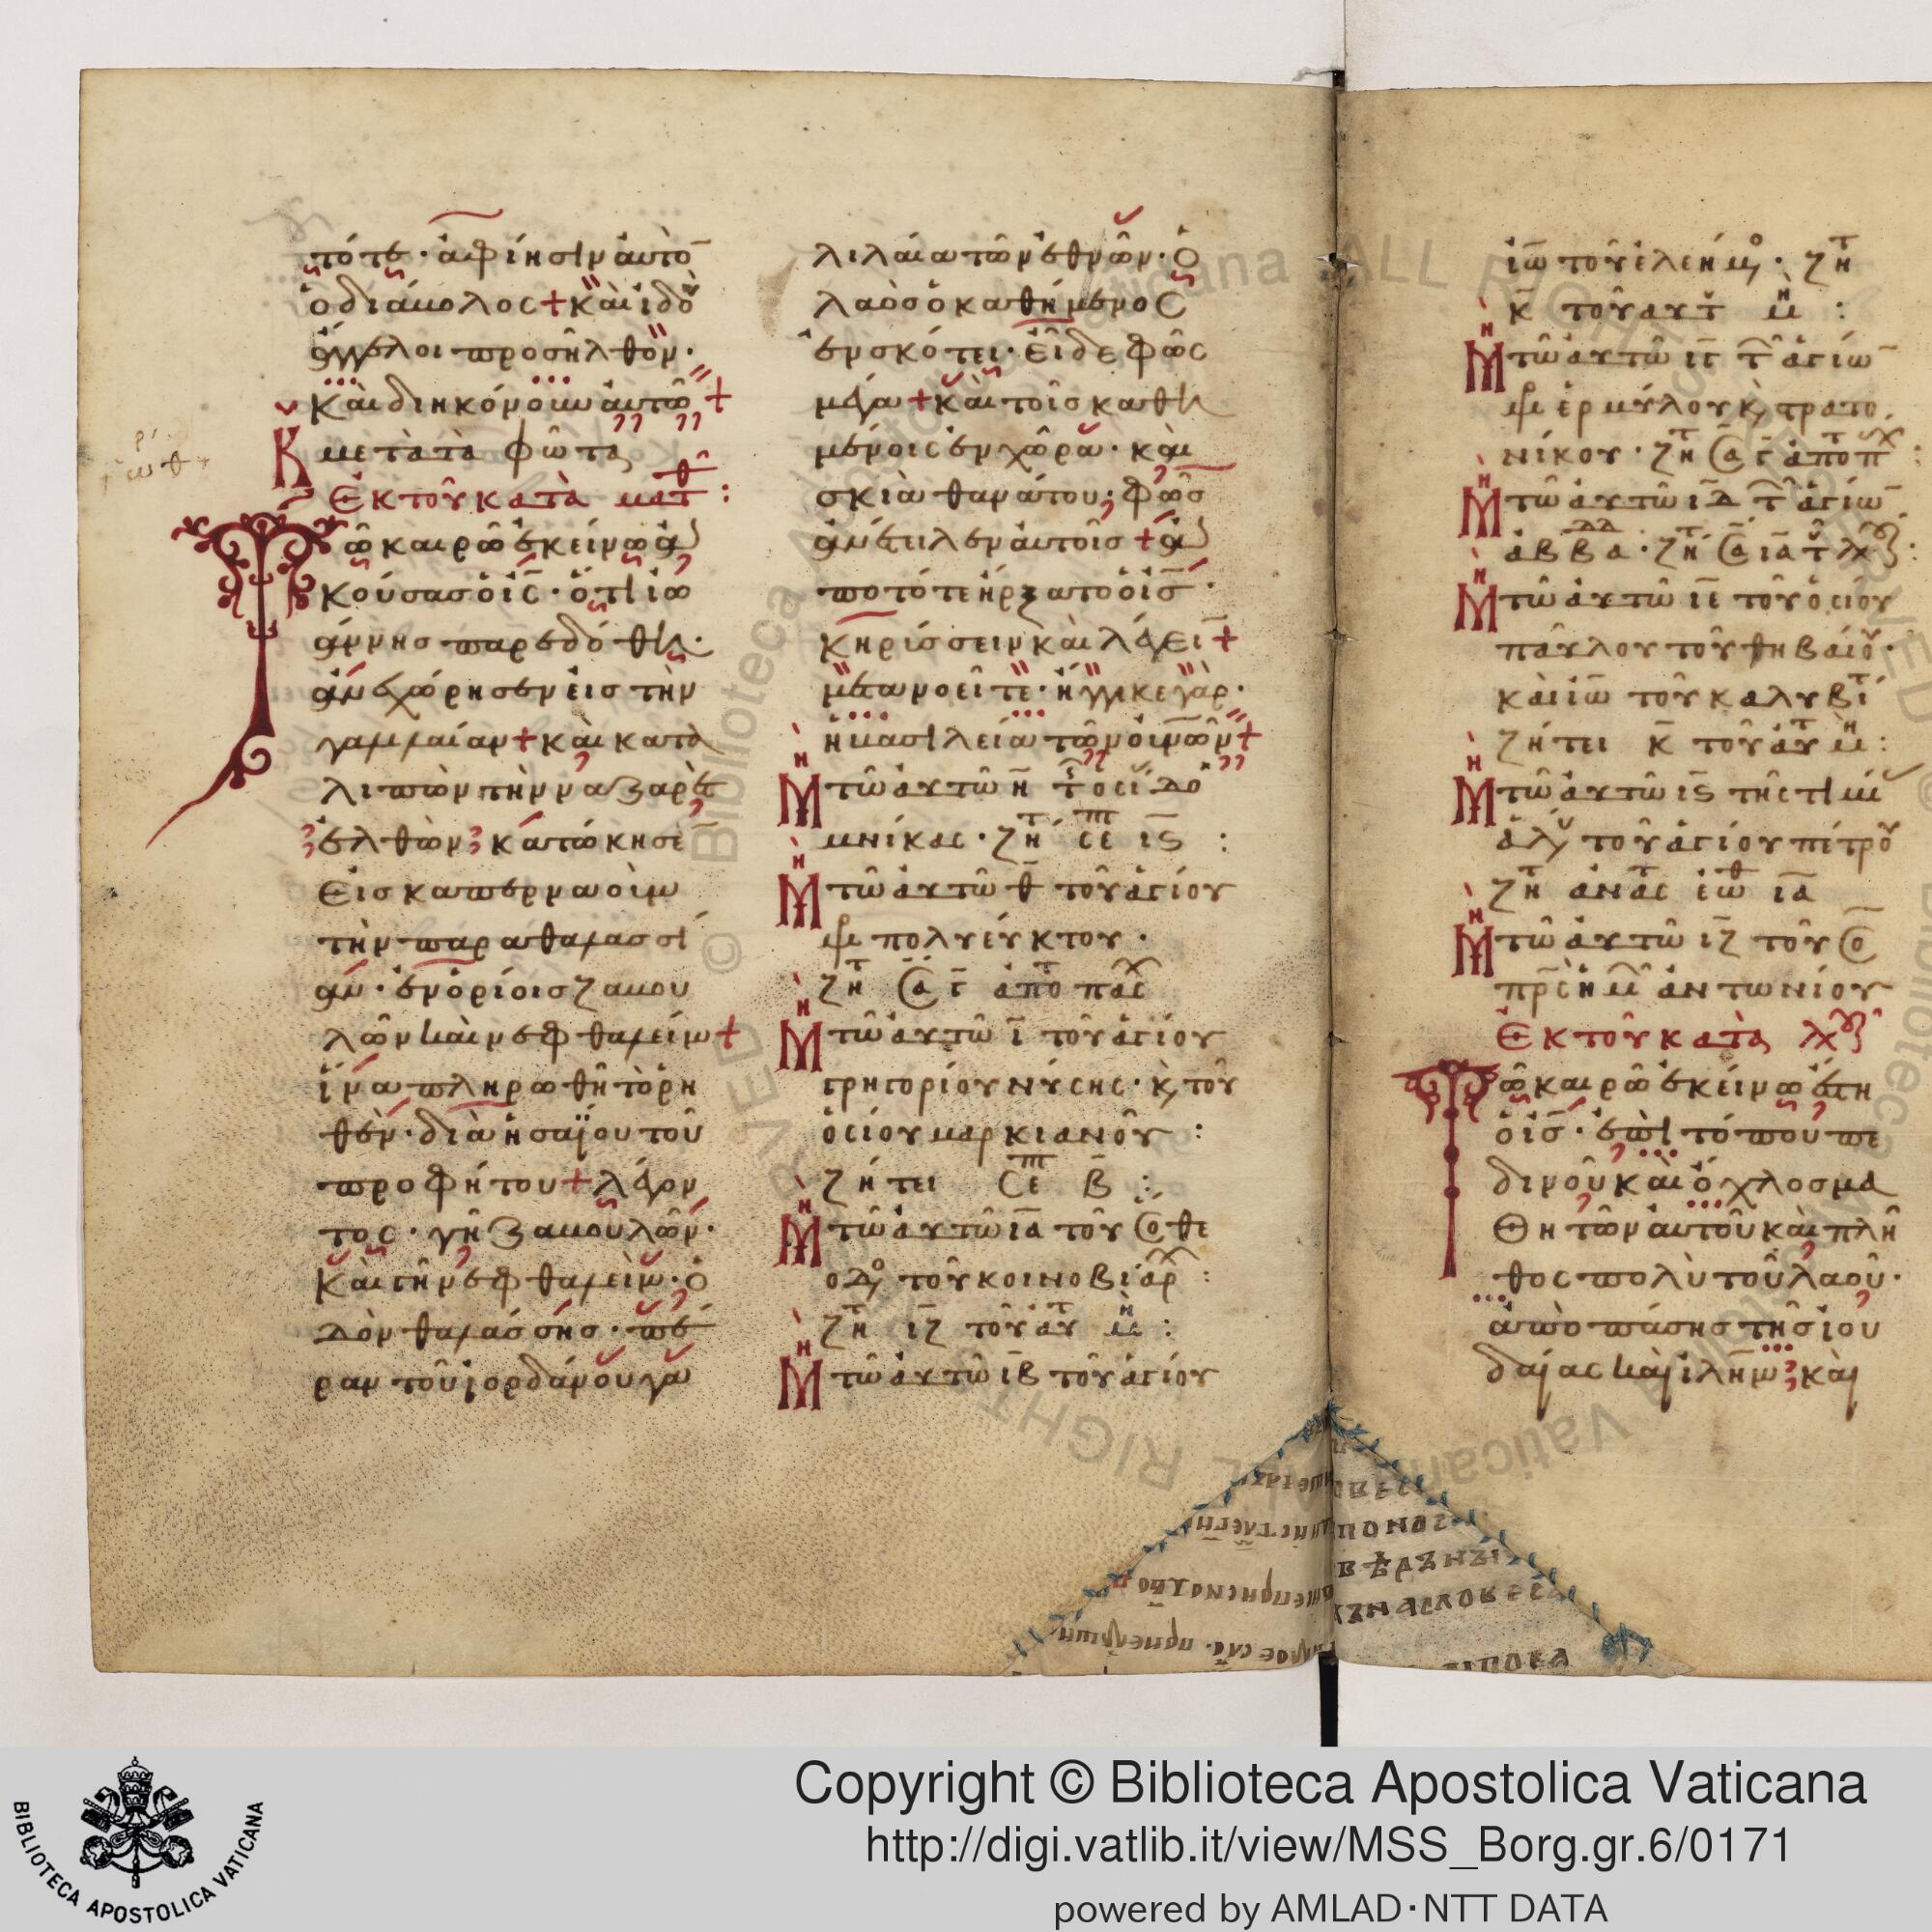 τότε· ἀφίησιν αὐτὸ
ὁ διάβολος + Καὶ ἰδοὺ
ἄγγελοι προσῆλθον·
Καὶ διηκόνουν αὐτῶ +
Κ μετὰ τὰ φῶτα
Ἐκ τοῦ κατὰ ματθ :
Τῶ καιρῶ ἐκείνω ἀ
κούσας ὁ ἰς̄· ὅτι ἰω
άννης παρεδόθη·
ἀνεχώρησεν εἰς τὴν
γαλιλαίαν + καὶ κατα
λιπὼν τὴν ναζαρὲτ
ἐλθὼν κατώκησε̄
εἰς καπερναοὺμ
τὴν παραθαλασσί
αν· ἐν ὁρίοις ζαβου
λὼν καὶ νεφθαλείμ +
ἵνα πληρωθῆ τὸ ῥη
θὲν· διὰ ἡσαΐου τοῦ
προφήτου + λέγον
τος· γῆ ζαβουλὼν·
Καὶ γῆ νεφθαλεὶμ· ὁ
δὸν θαλάσσης· πέ
ραν τοῦ ἰορδάνου γα
λιλαία τῶν ἐθνῶν· Ὁ
λαὸς ὁ καθήμενος
ἐν σκότει· εἶδε φῶς
μέγα + καὶ τοῖς καθη
μένοις ἐν χώρα· καὶ
σκιᾶ θανάτου· φῶς
ἀνέτειλεν αὐτοῖς + ἀ
πὸ τότε ἤρξατο ὁ ἰς̄·
κηρύσσειν καὶ λέγει +
μετανοεῖτε· ἤγγικε γὰρ·
ἡ βασιλεία τῶν οὐνῶν +
Μ τῶ αὐτῶ η̄ τ ὁσί δο
μνίκας· ζη σε ις :
Μ τῶ αὐτῶ θ̄ τοῦ ἁγίου
μ πολυεύκτου·
ζη α γ ἀπο πας
Μ τῶ αὐτῶ ῑ τοῦ ἁγίου
γρηγορίου νύσης· κ, τοῦ
ὁσίου μαρκιανοῦ :
ζήτει σε β :
Μ τῶ αὐτῶ ια τοῦ ὁ θε
οδ τοῦ κοινοβιαρ :
ζη ιζ τοῦ αυ μ :
Μ τῶ αὐτῶ ιβ τοῦ ἁγίου
ἰω τοῦ ἐλεήμο· ζη
κ τοῦ αυτ μ :
Μ τῶ αὐτῶ ιγ τ ἁγίω
μ ἑρμύλου κ, στρατο
νίκου· ζη α γ ἀπο π :
Μ τῶ αὐτῶ ιδ τ ἁγίω
ἀββα· ζη α ια τ λκ :
Μ τῶ αὐτῶ ιε τοῦ ὁσίου
παύλου τοῦ θηβαίου·
καὶ ἰω τοῦ καλυβι
ζήτει κ τοῦ αυ μ :
Μ τῶ αὐτῶ ις τῆς τιμι
ἁλυ τοῦ ἁγίου πέτρου
ζη ανας ἑωθ ια
Μ τῶ αὐτῶ ιζ τοῦ ὁ
πρς ημ ἀντωνίου
Ἐκ τοῦ κατὰ λκ
Τῶ καιρῶ ἐκείνω ἔστη
ὁ ἰς̄· ἐπὶ τόπου πε
δινοῦ καὶ ὄχλος μα
θητῶν αὐτοῦ καὶ πλῆ
θος πολὺ τοῦ λαοῦ·
ἀπὸ πάσης τῆς ἰου
δαίας καὶ ἰλημ· καὶ
Copyright © Biblioteca Apostolica Vaticana
http://digi.vatlib.it/view/MSS_Borg.gr.6/0171
powered by AMLAD·NTT DATA
BIBLIOTECA APOSTOLICA VATICANA